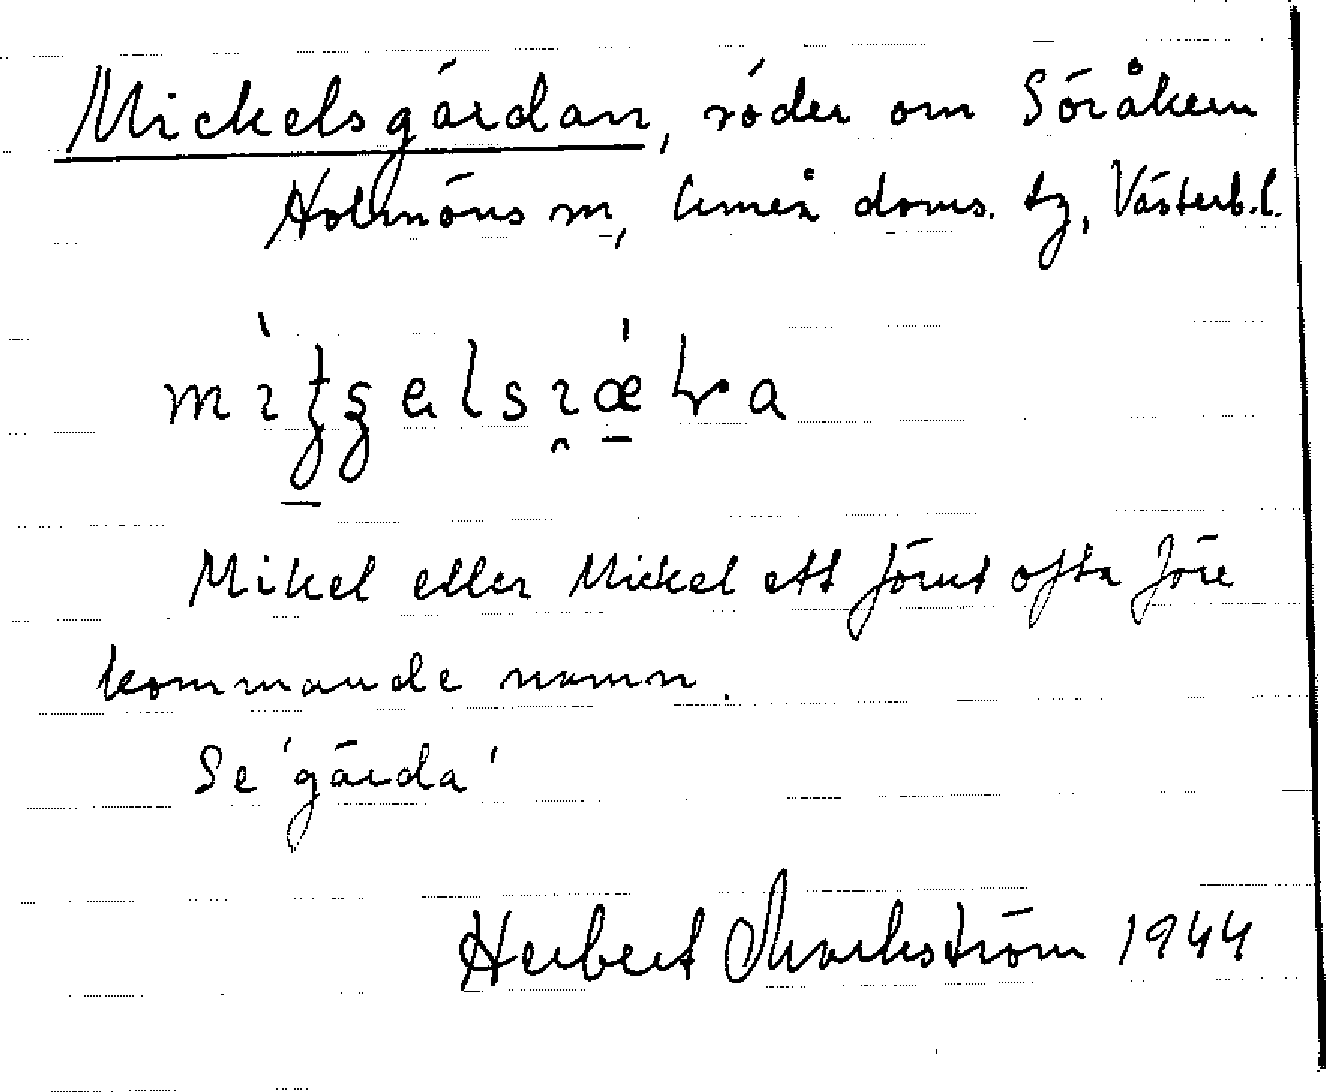 Mickelsgärdan, söder om Söråkern
Holmöns sn, Umeå doms. tg, Västerb.l.
Mikel eller Mickel ett förut ofta före
kommande namn.
Se 'gärda'
Herbert Markström 1944